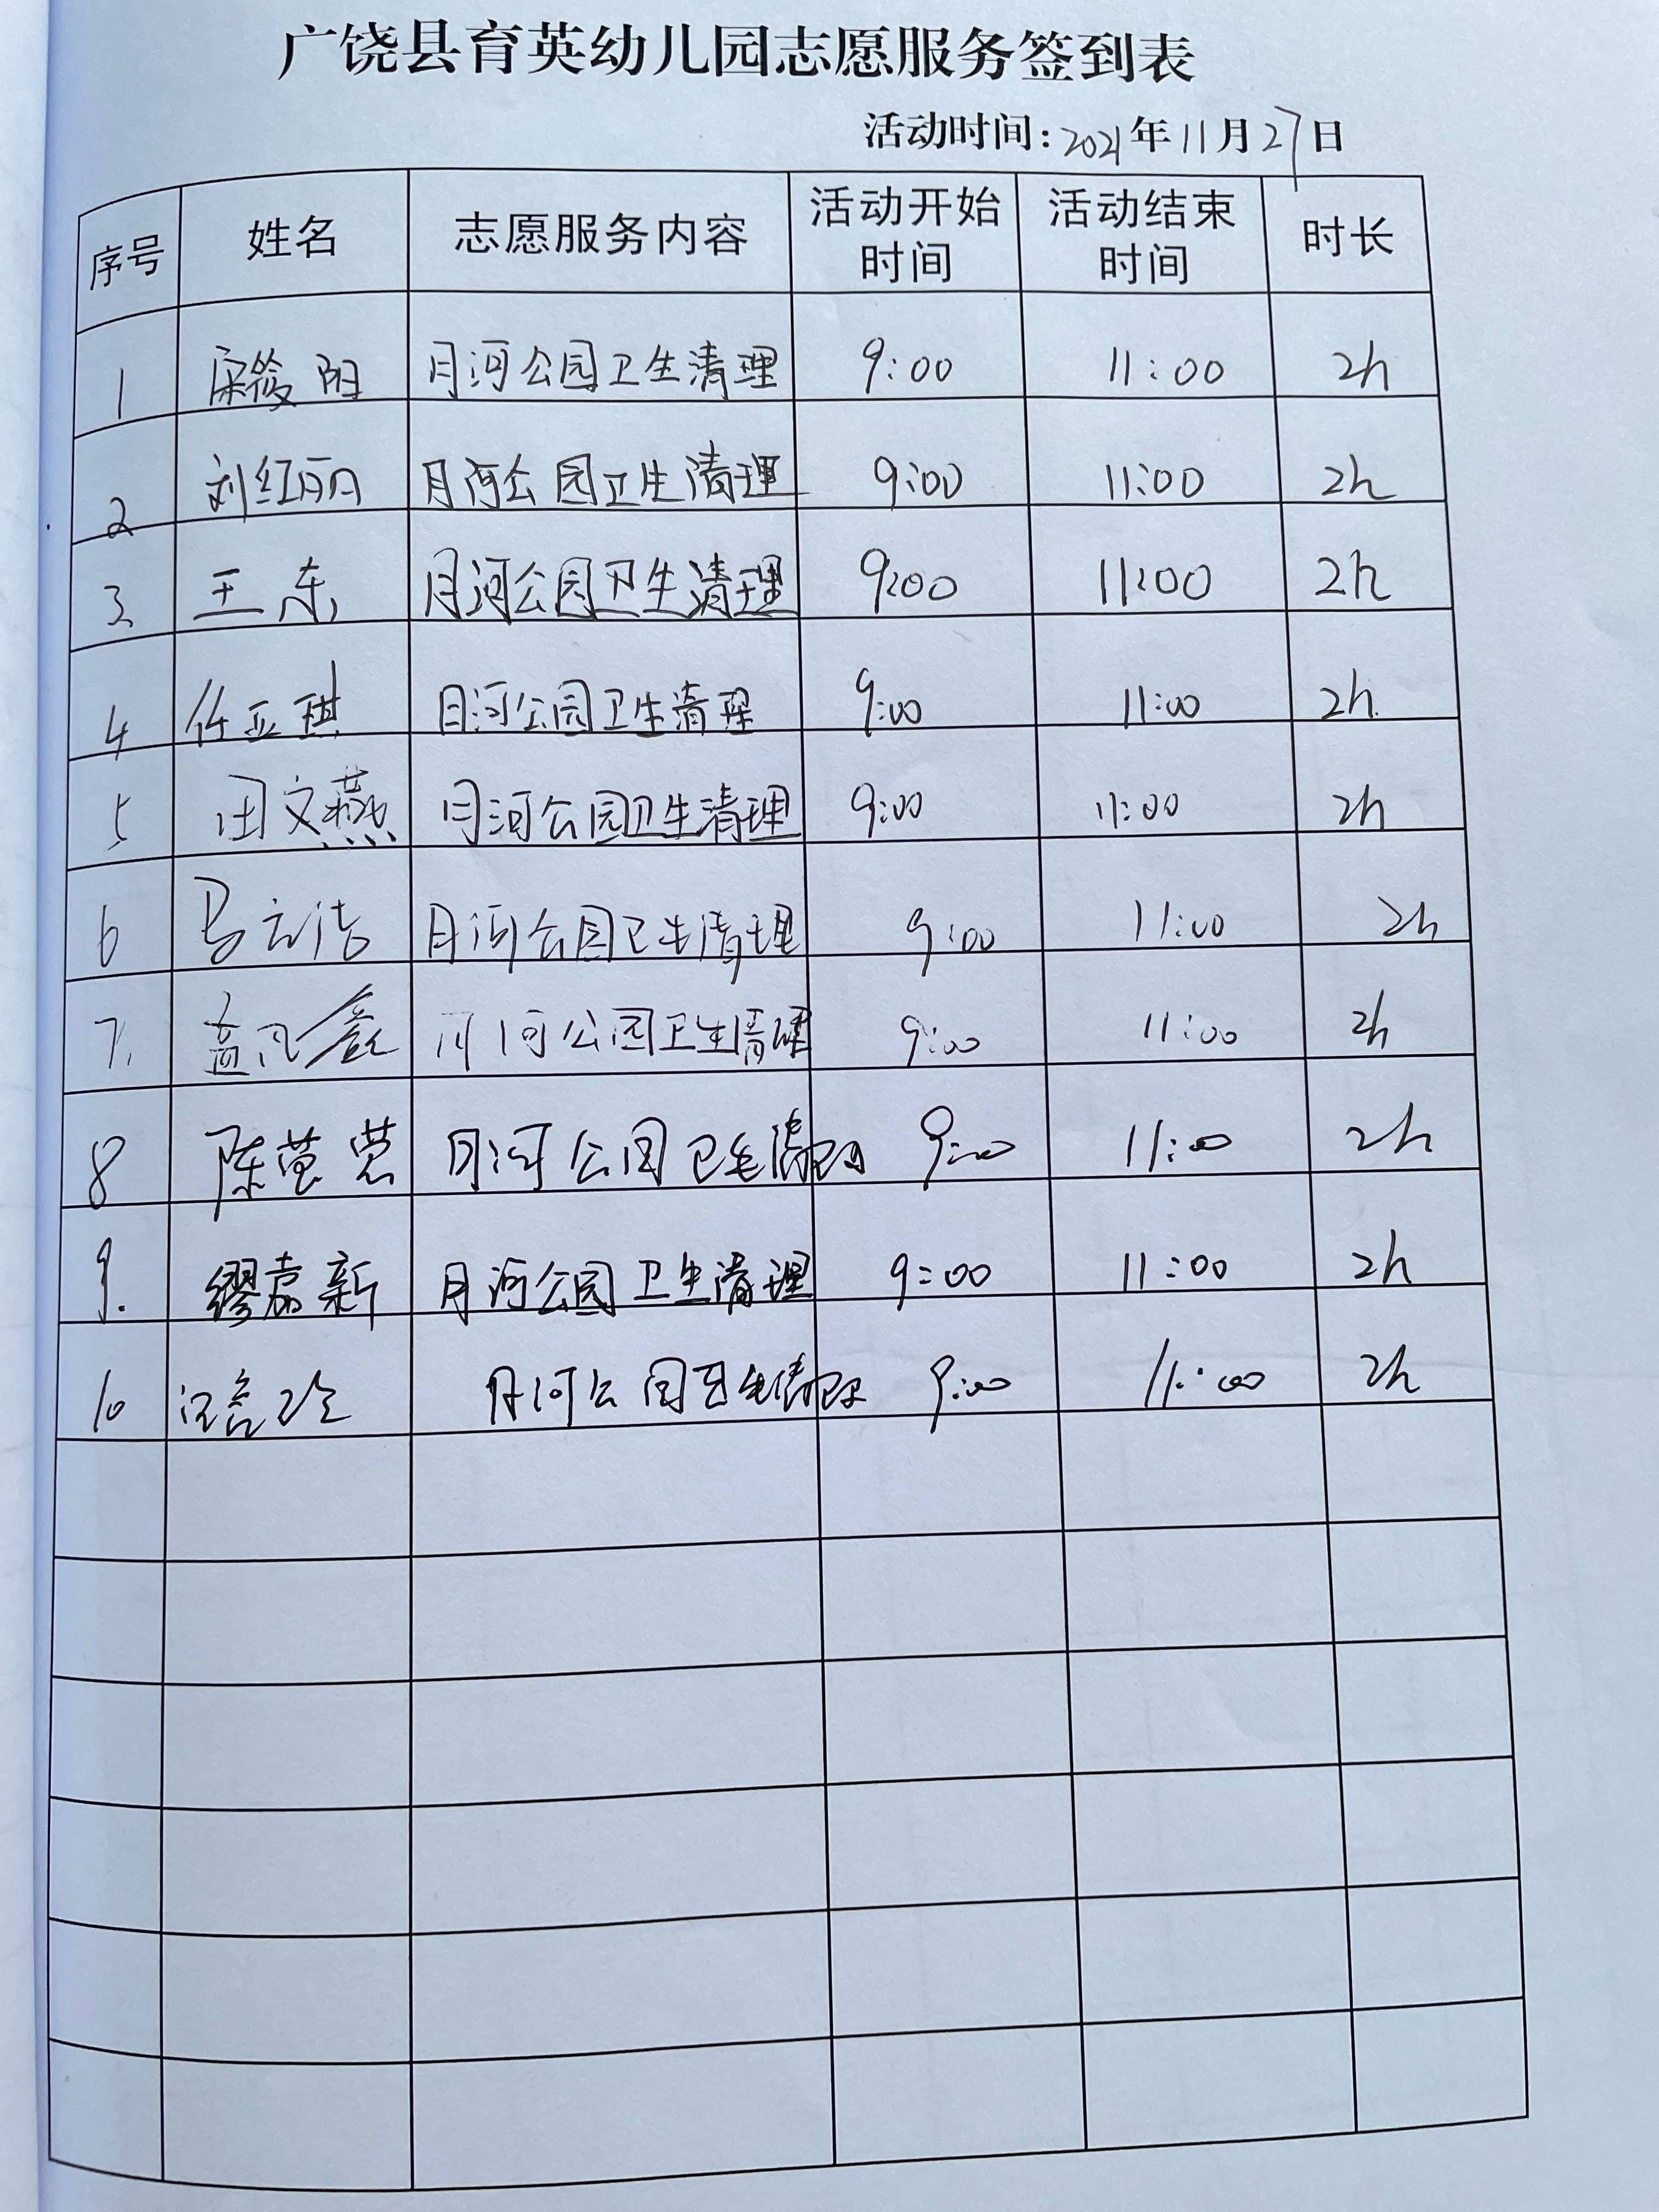 广饶县育英幼儿园志愿服务签到表
活动时间:2021年11月27日
序号 姓名 志愿服务内容 活动开始时间 活动结束时间 时长
1 宋筱阳 月河公园卫生清理 9:00 11:00 2h
2 刘红丽 月河公园卫生清理 9:00 11:00 2h
3. 王东 月河公园卫生清理 9:00 11:00 2h
4 任亚琪 月河公园卫生清理 9:00 11:00 2h.
5 田文燕 月河公园卫生清理 9:00 11:00 2h
6 马立洁 月河公园卫生清理 9:00 11:00 2h
7. 月河公园卫生清理 9:00 11:00 2h
8 陈莹莹 月河公园卫生清理 9:00 11:00 2h
9. 缪嘉新 月河公园卫生清理 9:00 11:00 2h
10 月河公园卫生清理 9:00 11:00 2h